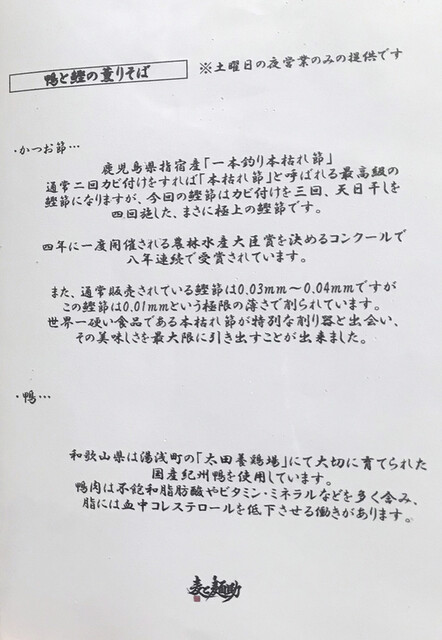 鴨と鰹の薫りそば
※土曜日の夜営業のみの提供です
・かつお節…
鹿児島県指宿産「一本釣り本枯れ節」
通常二回カビ付けをすれば「本枯れ節」と呼ばれる最高級の
鰹節になりますが、今回の鰹節はカビ付けを三回、天日干しを
四回施した、まさに極上の鰹節です。
四年に一度開催される農林水産大臣賞を決めるコンクールで
八年連続で受賞されています。
また、通常販売されている鰹節は0.03mm～0.04mmですが
この鰹節は0.01mmという極限の薄さで削られています。
世界一硬い食品である本枯れ節が特別な削り器と出会い、
その美味しさを最大限に引き出すことが出来ました。
・鴨…
和歌山県は湯浅町の「太田養鶏場」にて大切に育てられた
国産紀州鴨を使用しています。
鴨肉は不飽和脂肪酸やビタミン・ミネラルなどを多く含み、
脂には血中コレステロールを低下させる働きがあります。
麦と麺助